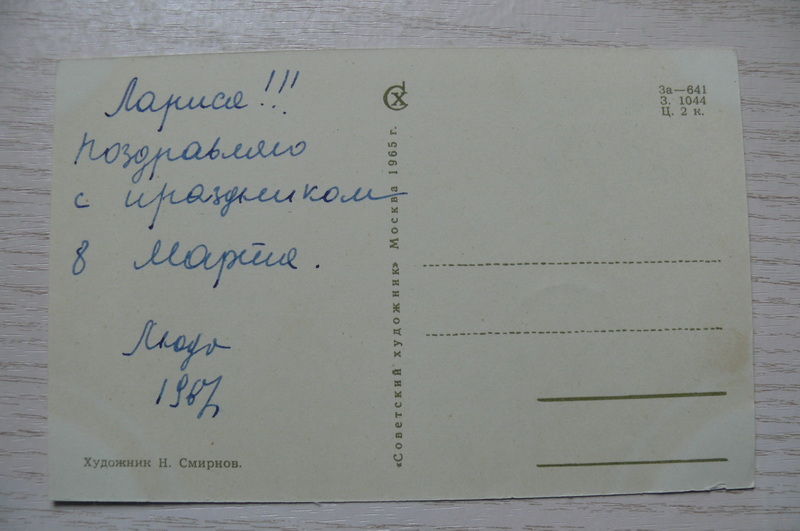 Лариса!!!
Поздравляю
с праздником
8 Марта.
Люда
1967
Художник Н. Смирнов.
«Советский художник» Москва 1965 г.
СХ
3а—641
З. 1044
Ц. 2 к.